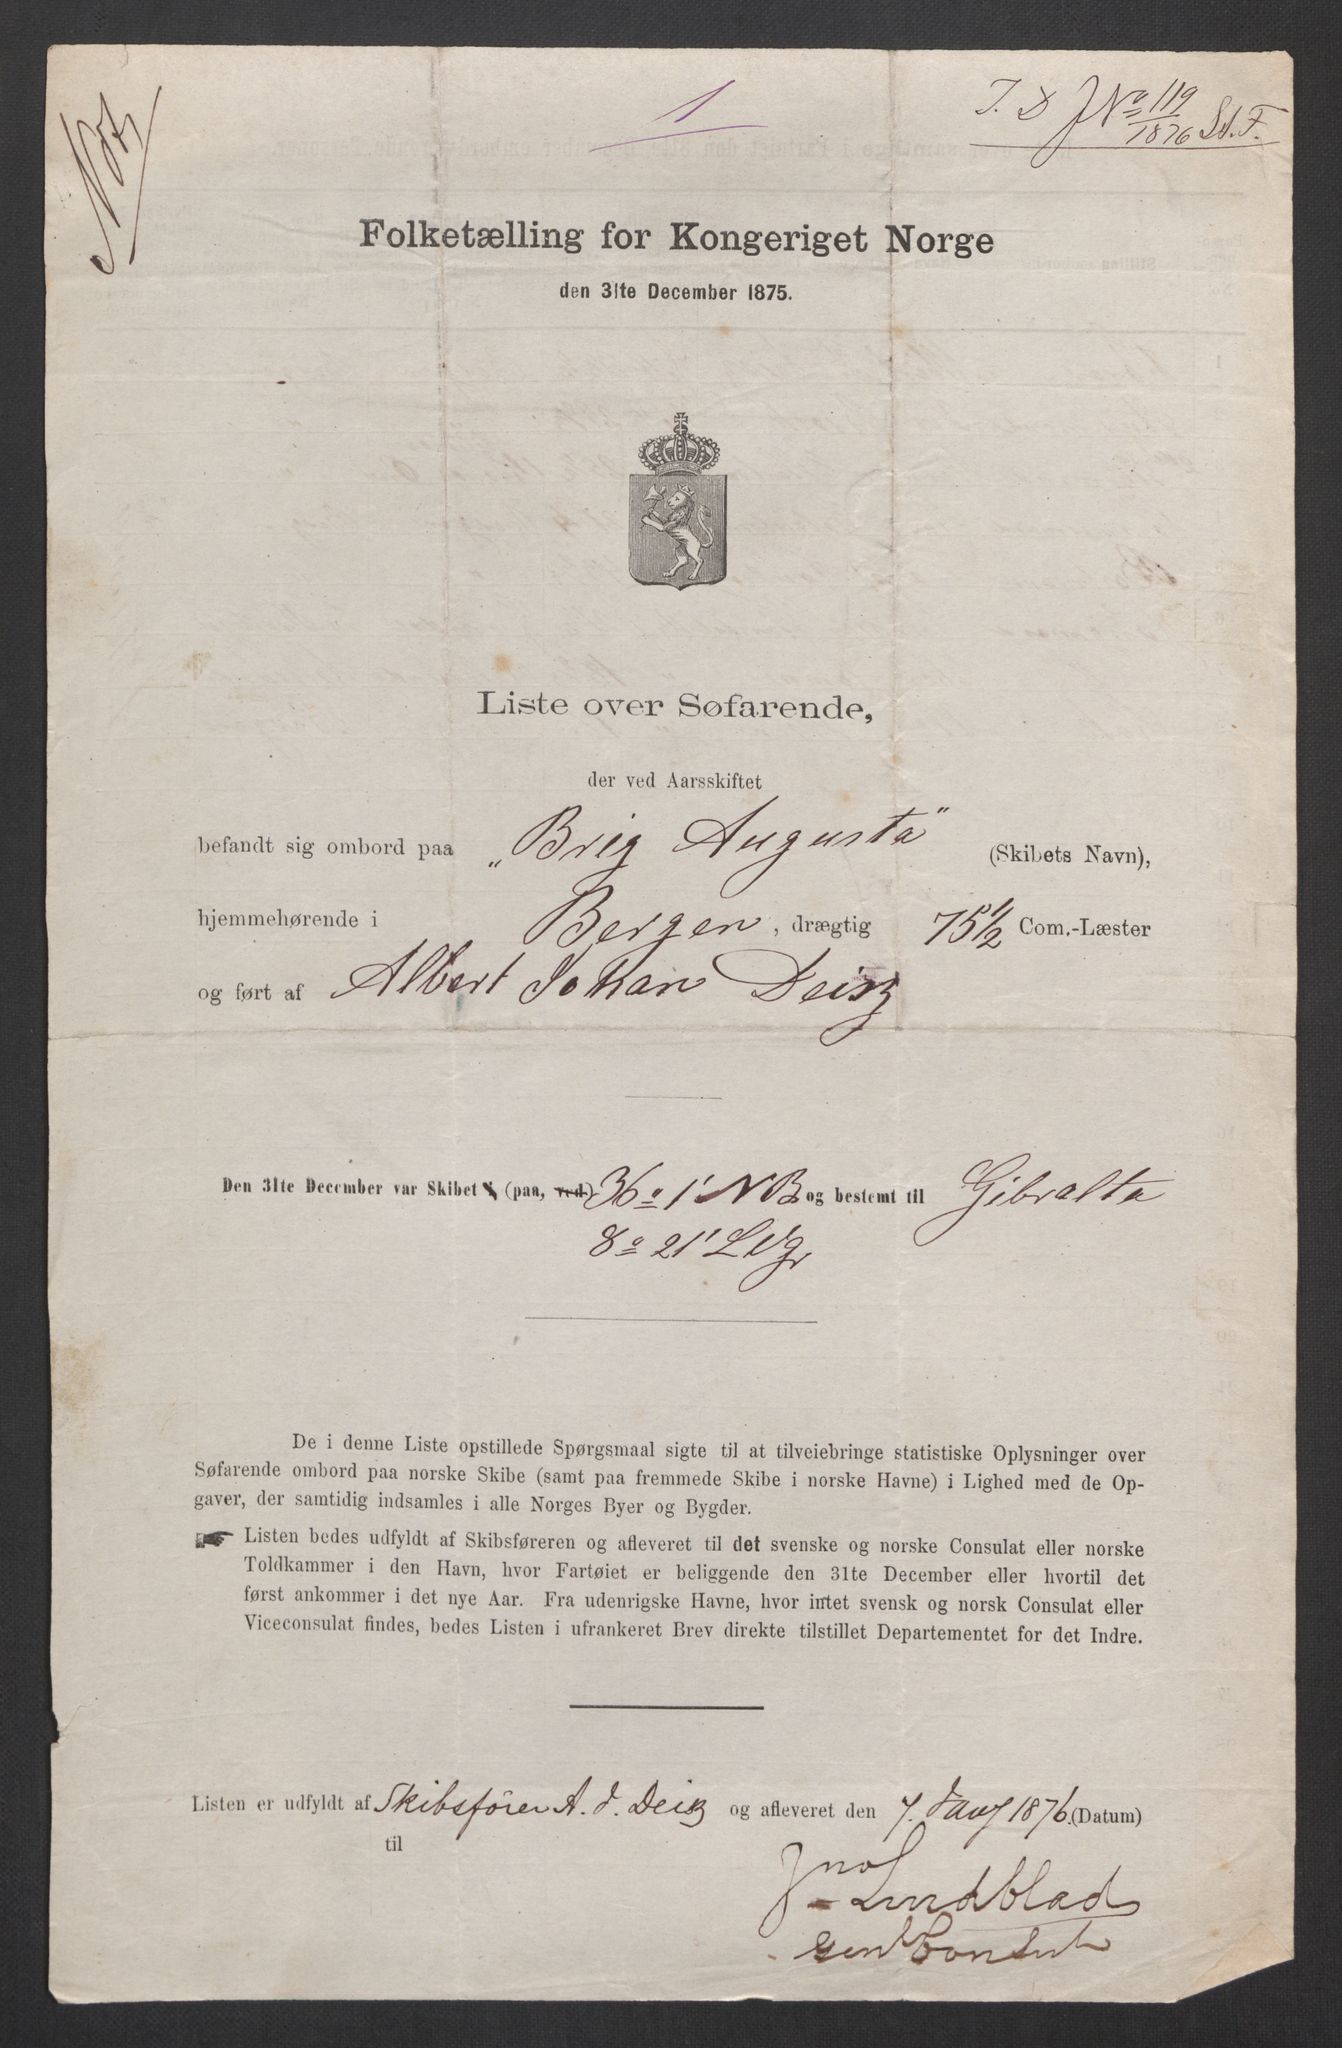 Not
1
I. D JNo 119/1876 St. F.
Folketælling for Kongeriget Norge
den 31te December 1875.
Liste over Søfarende,
der ved Aarsskiftet
befandt sig ombord paa „Brig Augusta” (Skibets Navn),
hjemmehørende i Bergen, drægtig 75 1/2 Com.-Læster
og ført af Albert Johan Deisz
Den 31te December var Skibet i (paa, ved) 36° 1' NB og bestemt til Gibralta
8° 21' Lgr
De i denne Liste opstillede Spørgsmaal sigte til at tilveiebringe statistiske Oplysninger over
Søfarende ombord paa norske Skibe (samt paa fremmede Skibe i norske Havne) i Lighed med de Op-
gaver, der samtidig indsamles i alle Norges Byer og Bygder.
☛ Listen bedes udfyldt af Skibsføreren og afleveret til det svenske og norske Consulat eller norske
Toldkammer i den Havn, hvor Fartøiet er beliggende den 31te December eller hvortil det
først ankommer i det nye Aar. Fra udenrigske Havne, hvor intet svensk og norsk Consulat eller
Viceconsulat findes, bedes Listen i ufrankeret Brev direkte tilstillet Departementet for det Indre.
Listen er udfyldt af Skibsfører A. J. Deisz og afleveret den 7. Janr 1876. (Datum)
til
Jno Lindblad
Genl Consul